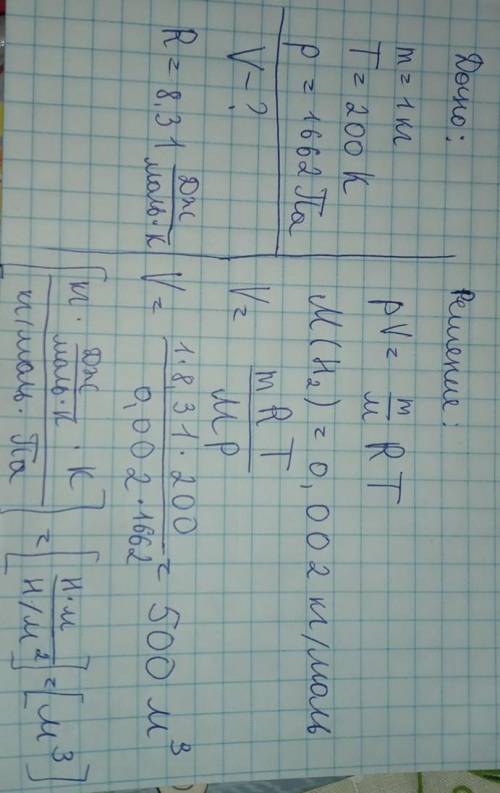 Дано:
m = 1 кг
T = 200 К
p = 1662 Па
V - ?
R = 8,31 Дж/моль·К
Решение:
pV = m/M RT
M(H₂) = 0,002 кг/моль
V = mRT/Mp
V = 1·831·200/0,002·1662 = 500 м³
[кг · Дж/моль·К · К / кг/моль · Па] = [Н·м/Н/м²] = [м³]